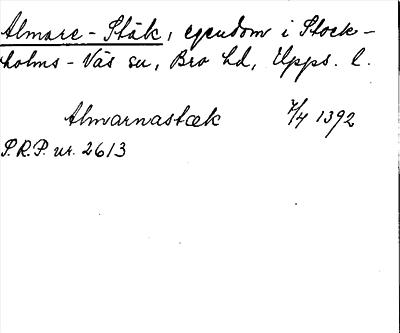 Almare-Stäk, egendom i Stock-
holms-Näs sn, Bro hd, Upps. l.
Almarnastæk 7/4 1392
P.R.P. nr. 2613